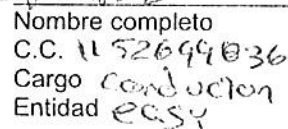 Nombre completo
C.C. 1152699836
Cargo Conducion
Entidad easy